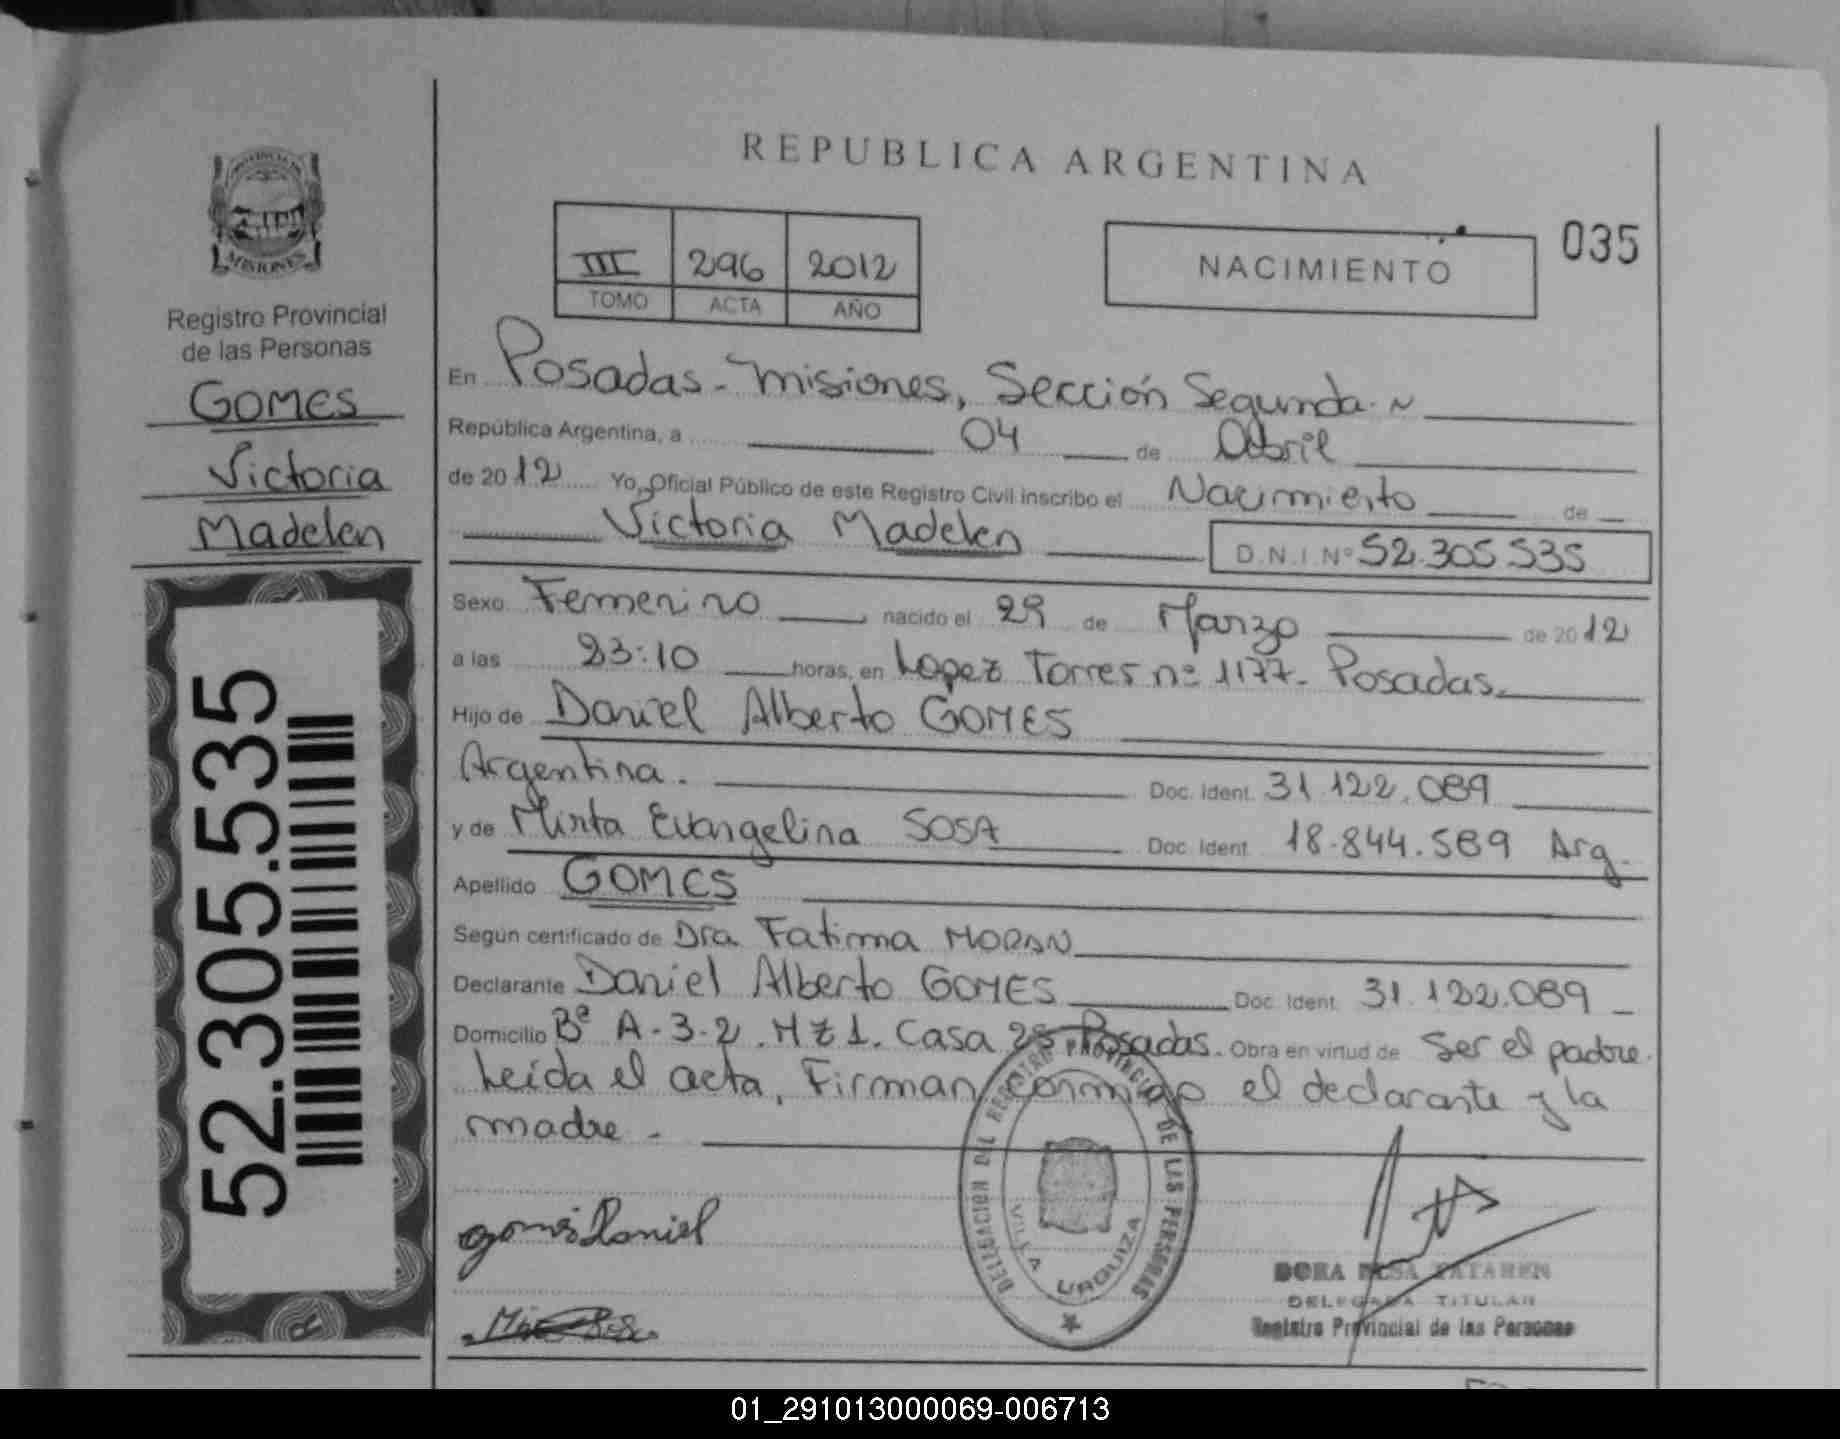 REPUBLICA ARGENTINA
III 296 2012
TOMO ACTA AÑO
NACIMIENTO
035
MISIONES
Registro Provincial
de las Personas
GOMES
Victoria
Madelen
52.305.535
En Posadas - Misiones, Sección Segunda.
República Argentina, a 04 de Abril
de 2012 Yo, Oficial Público de este Registro Civil inscribo el Nacimiento de
Victoria Madelen D.N.I. Nº 52.305.535
Sexo Femenino nacido el 29 de Marzo de 2012
a las 23:10 horas, en Lopez Torres nº 1177 - Posadas.
Hijo de Daniel Alberto GOMES
Argentina. Doc. Ident. 31.122.089
y de Mirta Evangelina SOSA Doc. Ident. 18.844.589 Arg.
Apellido GOMES
Según certificado de Dra Fatima MORAN
Declarante Daniel Alberto GOMES Doc. Ident. 31.122.089
Domicilio Bº A-3-2. Mz 1. Casa 25 Posadas. Obra en virtud de ser el padre.
Leída el acta, Firman conmigo el declarante y la
madre.
gomes Daniel
DELEGACION DEL REGISTRO PROVINCIAL DE LAS PERSONAS
VILLA URQUIZA
DORA ROSA TATAREN
DELEGADA TITULAR
Registro Provincial de las Personas
01_291013000069-006713